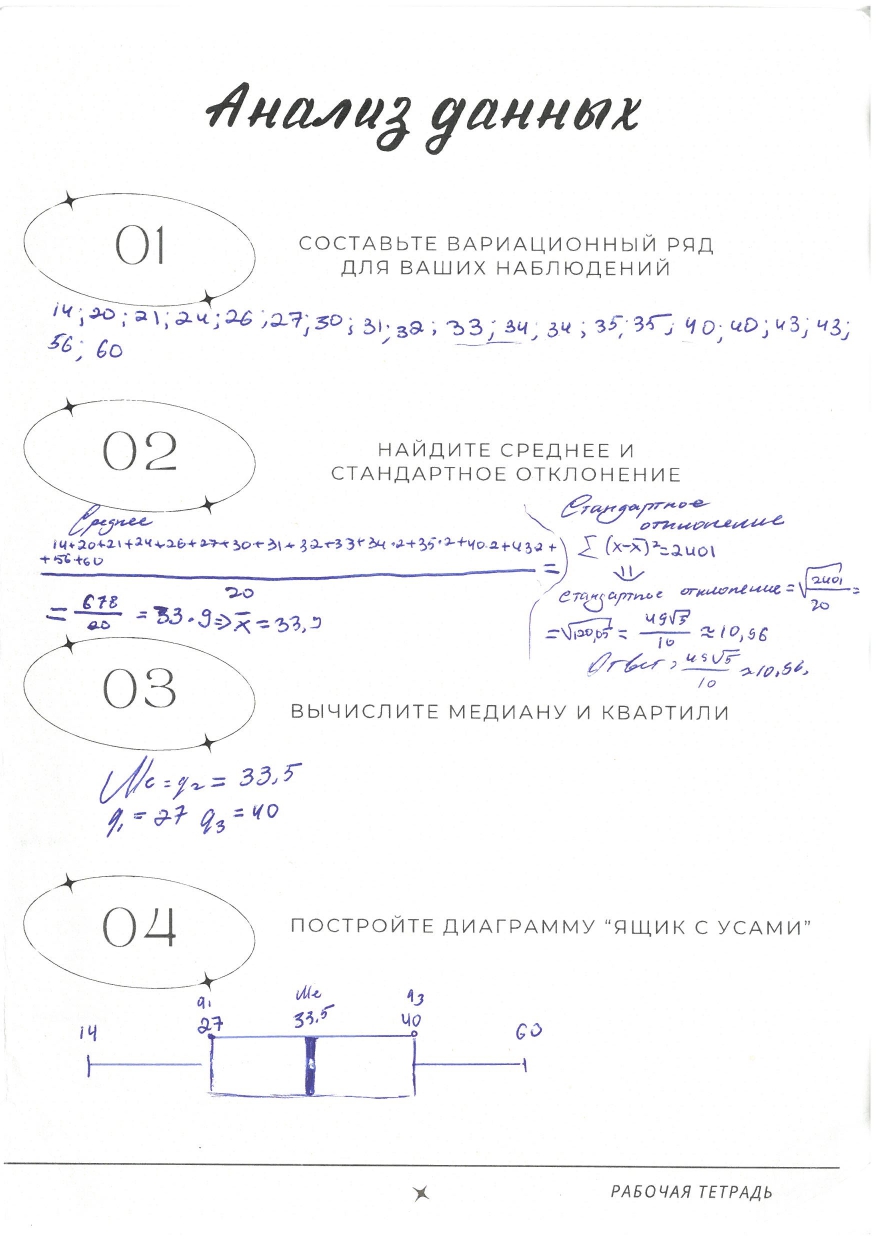 Анализ данных
01
СОСТАВЬТЕ ВАРИАЦИОННЫЙ РЯД
ДЛЯ ВАШИХ НАБЛЮДЕНИЙ
14; 20; 21; 24; 26; 27; 30; 31; 32; 33; 34; 34; 35; 35; 40; 40; 43; 43;
56; 60
02
НАЙДИТЕ СРЕДНЕЕ И
СТАНДАРТНОЕ ОТКЛОНЕНИЕ
Среднее
14+20+21+24+26+27+30+31+32+33+34·2+35·2+40·2+43·2+
+56+60
=
20
= 678/20 = 33.9 => x̄ = 33,9
Стандартное
отклонение
∑ (x-x̄)²=2401
⇓
Стандартное отклонение = √2401/20 =
= √120,05 = 49√5/10 ≈ 10,96
Ответ: 49√5/10 ≈ 10,96.
03
ВЫЧИСЛИТЕ МЕДИАНУ И КВАРТИЛИ
Me = q2 = 33,5
q1 = 27 q3 = 40
04
ПОСТРОЙТЕ ДИАГРАММУ “ЯЩИК С УСАМИ”
q1 Me q3
14 27 33.5 40 60
РАБОЧАЯ ТЕТРАДЬ